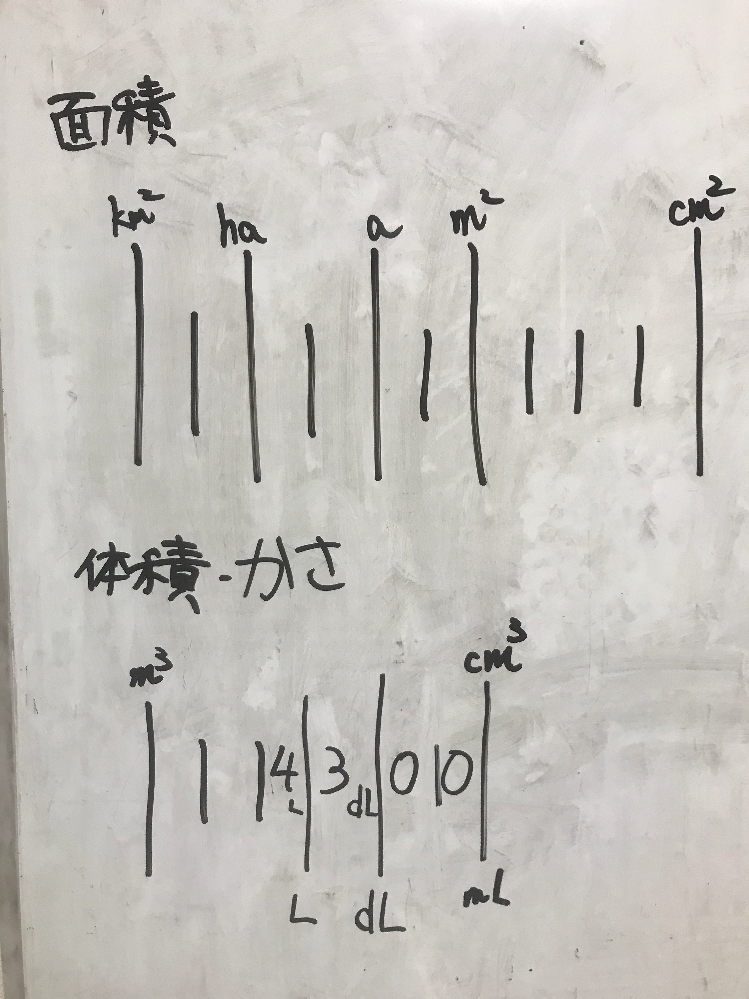 面積
km² ha a m² cm²
体積・かさ
m³ cm³
4 3 0 0
L dL
L dL mL